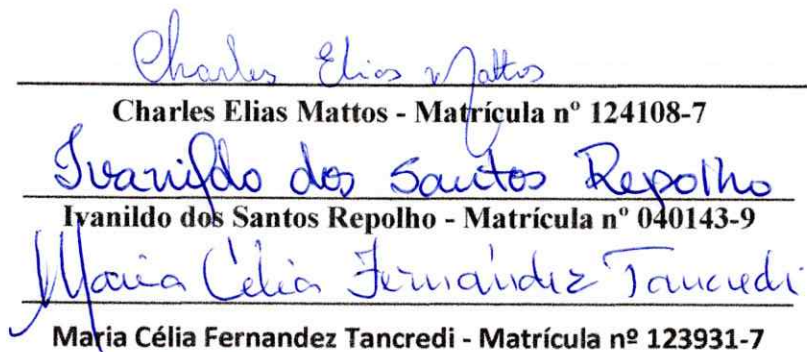 Charles Elias Mattos
Charles Elias Mattos - Matrícula nº 124108-7
Ivanildo dos Santos Repolho
Ivanildo dos Santos Repolho - Matrícula nº 040143-9
Maria Célia Fernandez Tancredi
Maria Célia Fernandez Tancredi - Matrícula nº 123931-7